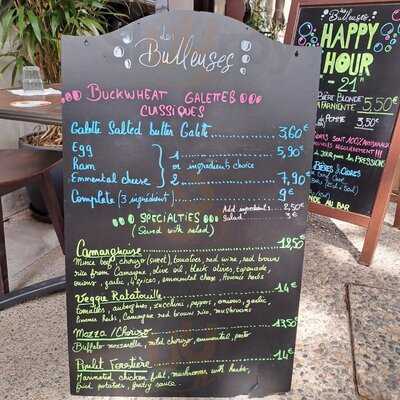 Les
Bulleuses
BUCKWHEAT GALETTES
CLASSIQUES
Galette Salted butter Galette 3,60€
Egg
Ham
Emmental cheese
1 or ingredients choice 5,90€
2 7,90€
Complete (3 ingredient) 9€
Add ingredient 2,50€
Salad 3€
SPECIALTIES
(Served with salad)
Camarguaise 18,50
Mince beef, chorizo (sweet), tomatoes, red wine, red brown
rice from Camargue, olive oil, black olives, tapenade,
onions, garlic, spices, emmental cheese, Provence herbs
Veggie Ratatouille 14€
tomatoes, aubergines, zucchini, pepper, onions, garlic,
Camargue red brown rice, mushrooms
Mozza / Chorizo 13,50€
Buffalo mozzarella, mild chorizo, emmental, pesto
Poulet Forestière 14€
Marinated chicken filet, mushrooms with herbs,
fried potatoes, sauce
Bulleuses
HAPPY
HOUR
21h
BIÈRE BLONDE
5,50€
POMME 3,50€
BIÈRES & CIDRES
AU BAR